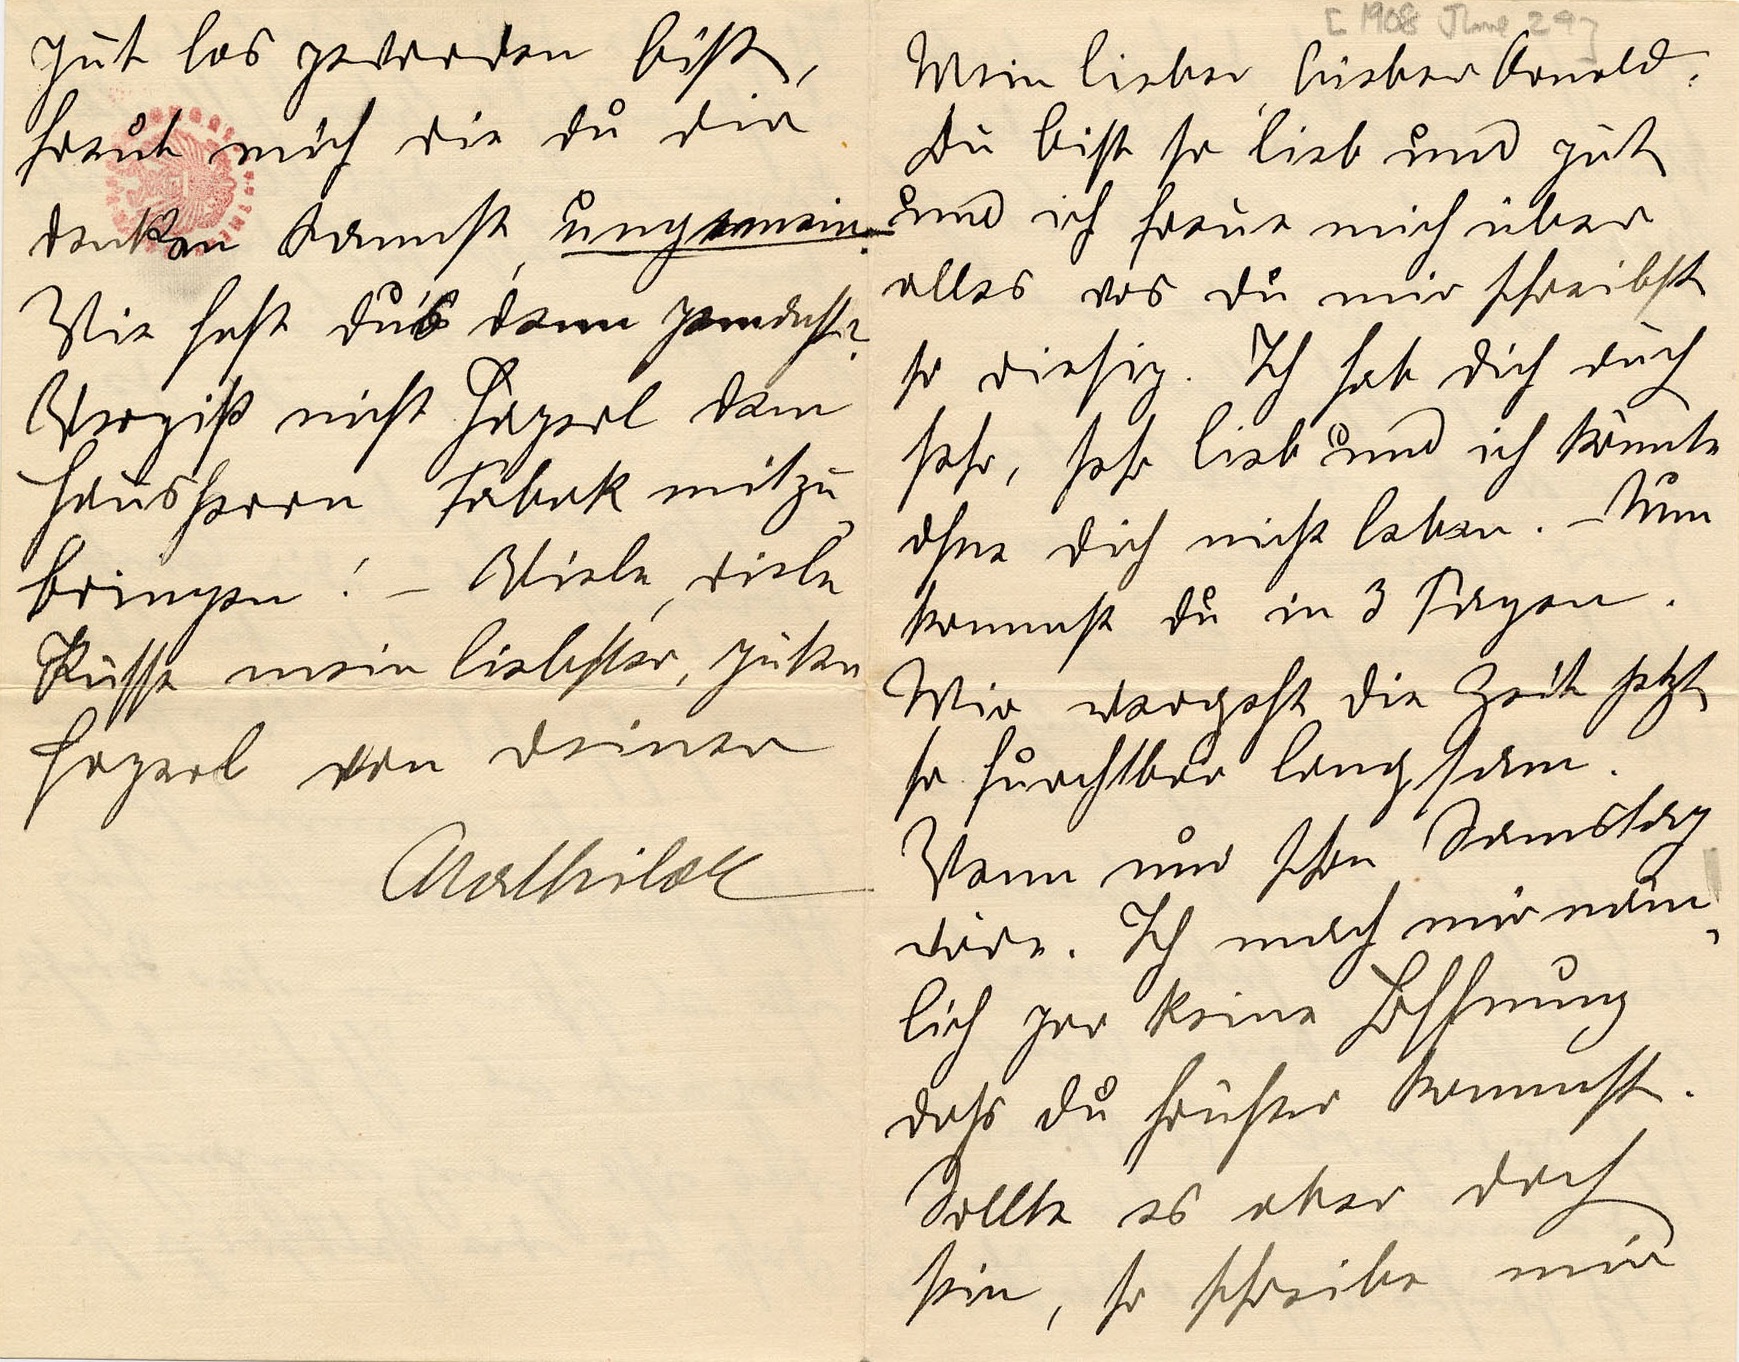 [1908 June 29]
Mein lieber, lieber Arnold.
Du bist so lieb und gut
und ich freue mich über
alles was du mir schreibst
so riesig. Ich hab dich auch
sehr, sehr lieb und ich könnte
ohne dich nicht leben. – Nun
kommst du in 3 Tagen.
Mir vergeht die Zeit jetzt
so furchtbar langsam.
Wenn nur schon Samstag
wäre. Ich mach mir näm-
lich gar keine Hoffnung
dass du früher kommst.
Sollte es aber doch
sein, so schreibe mir
gut los geworden bist,
freut mich wie du dir
denken kannst, ungemein.
Wie hast du's denn gemacht?
Vergiß nicht Hazerl dem
Hausherrn Tabak mitzu-
bringen! – Viele, viele
Küsse mein liebster, guter
Hazerl von deiner
Mathilde